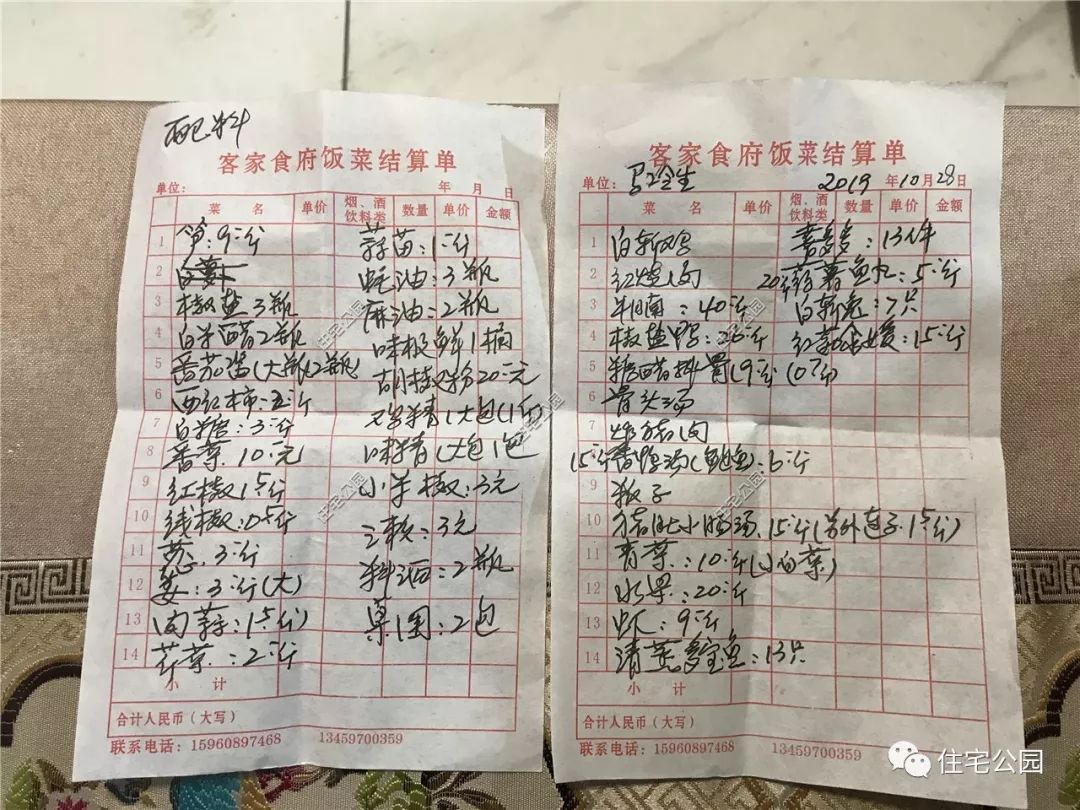 配料
客家食府饭菜结算单
单位: 年 月 日
菜 名 单价 烟、酒饮料类 数量 单价 金额
1 笋:9斤 蒜苗:1斤
2 蚝油:3瓶
3 椒盐3瓶 麻油:2瓶
4 白米醋2瓶 味极鲜1桶
5 番茄酱(大瓶)2瓶 胡椒粉20元
6 西红柿:5斤 鸡精(大包)(1斤)
7 白糖:3斤 味精(大包)1包
8 香菜10元
9 红椒1.5斤 小羊椒:3元
10 线椒:0.5斤 3元
11 葱:3斤 料酒:2瓶
12 姜:3斤(大)
13 肉蒜:1.5斤 2包
14 芹菜:2斤
小 计
合计人民币(大写)
联系电话:15960897468 13459700359
客家食府饭菜结算单
单位: 2019 年 10 月 28 日
菜 名 单价 烟、酒饮料类 数量 单价 金额
1 白斩鸡 :13件
2 红烧肉 20斤 鱼丸:5斤
3 牛腩:40斤 白斩兔:7只
4 椒盐 :26斤 :15斤
5 糖醋排骨19斤
6 骨头汤
7 炸猪肉
8 15斤 :6斤
9 粄子
10 猪肚小肠汤:15斤(另外莲子1.5斤)
11 青菜:10斤(小白菜)
12 水果:20斤
13 虾:9斤
14 清蒸多宝鱼:13只
小 计
合计人民币(大写)
联系电话:15960897468 13459700359
住宅公园
住宅公园
住宅公园
住宅公园
住宅公园
住宅公园
住宅公园